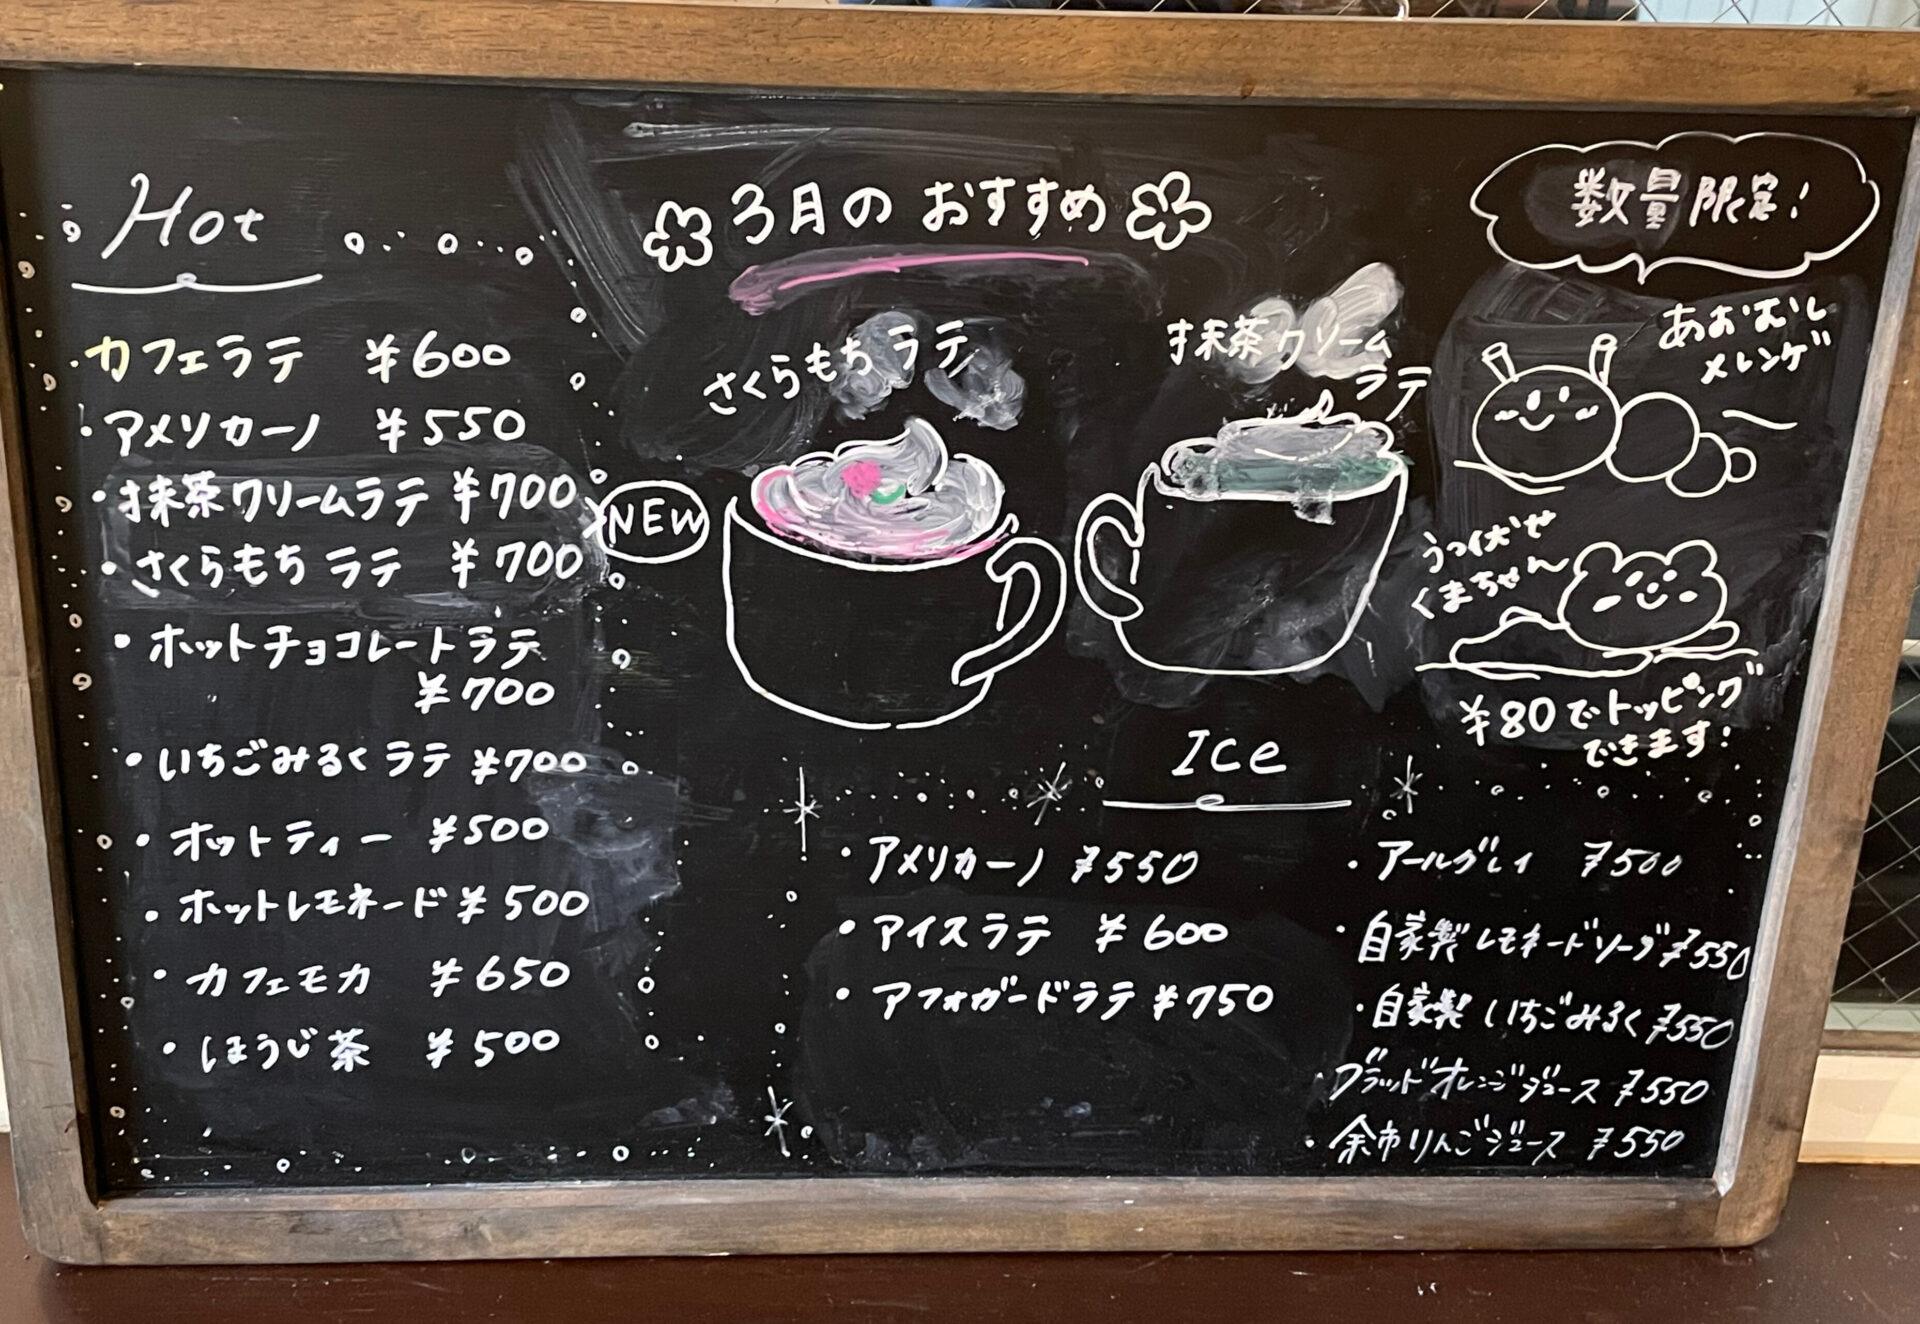 Hot
・カフェラテ ¥600
・アメリカーノ ¥550
・抹茶クリームラテ ¥700
・さくらもちラテ ¥700
NEW
・ホットチョコレートラテ
¥700
・いちごみるくラテ ¥700
・ホットティー ¥500
・ホットレモネード ¥500
・カフェモカ ¥650
・ほうじ茶 ¥500
3月のおすすめ
さくらもちラテ
抹茶クリーム
ラテ
数量限定!
あおむし
メレンゲ
うつ伏せ
くまちゃん
¥80でトッピング
できます!
Ice
・アメリカーノ ¥550
・アイスラテ ¥600
・アフォガードラテ ¥750
・アールグレイ ¥500
・自家製レモネードソーダ ¥550
・自家製いちごみるく ¥550
・ブラッドオレンジジュース ¥550
・余市りんごジュース ¥550